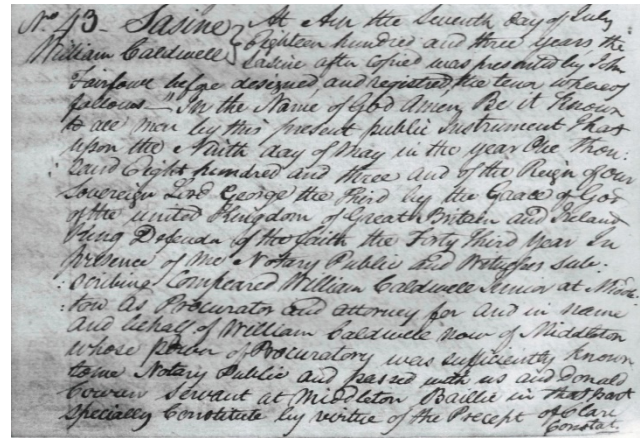 No. 43 - Sasine
William Caldwell
At Air the Seventh day of July
Eighteen hundred and three years the
Sasine after copied was presented by John
Fairfowl before designed and registred, the tenor whereof
follows— In the Name of God Amen, Be it Known
to all men by this present public Instrument That
upon the Ninth day of May in the year One thou:
:sand Eight hundred and three and of the Reign of our
Sovereign Lord George the Third by the Grace of God
of the united Kingdom of Great Britain and Ireland
King Defender of the faith the Forty third Year In
presence of me Notary Public and Witnesses sub:
:scribing Compeared William Caldwell Senior at Middle
:ton As Procurator and attorney for and in name
and behalf of William Caldwell now of Middleton
whose power of Procuratory was sufficiently known
to me Notary Public and passed with us and Donald
Cowan Servant at Middleton Baillie in that part
specially Constitute by virtue of the Precept of Clare
Constat.